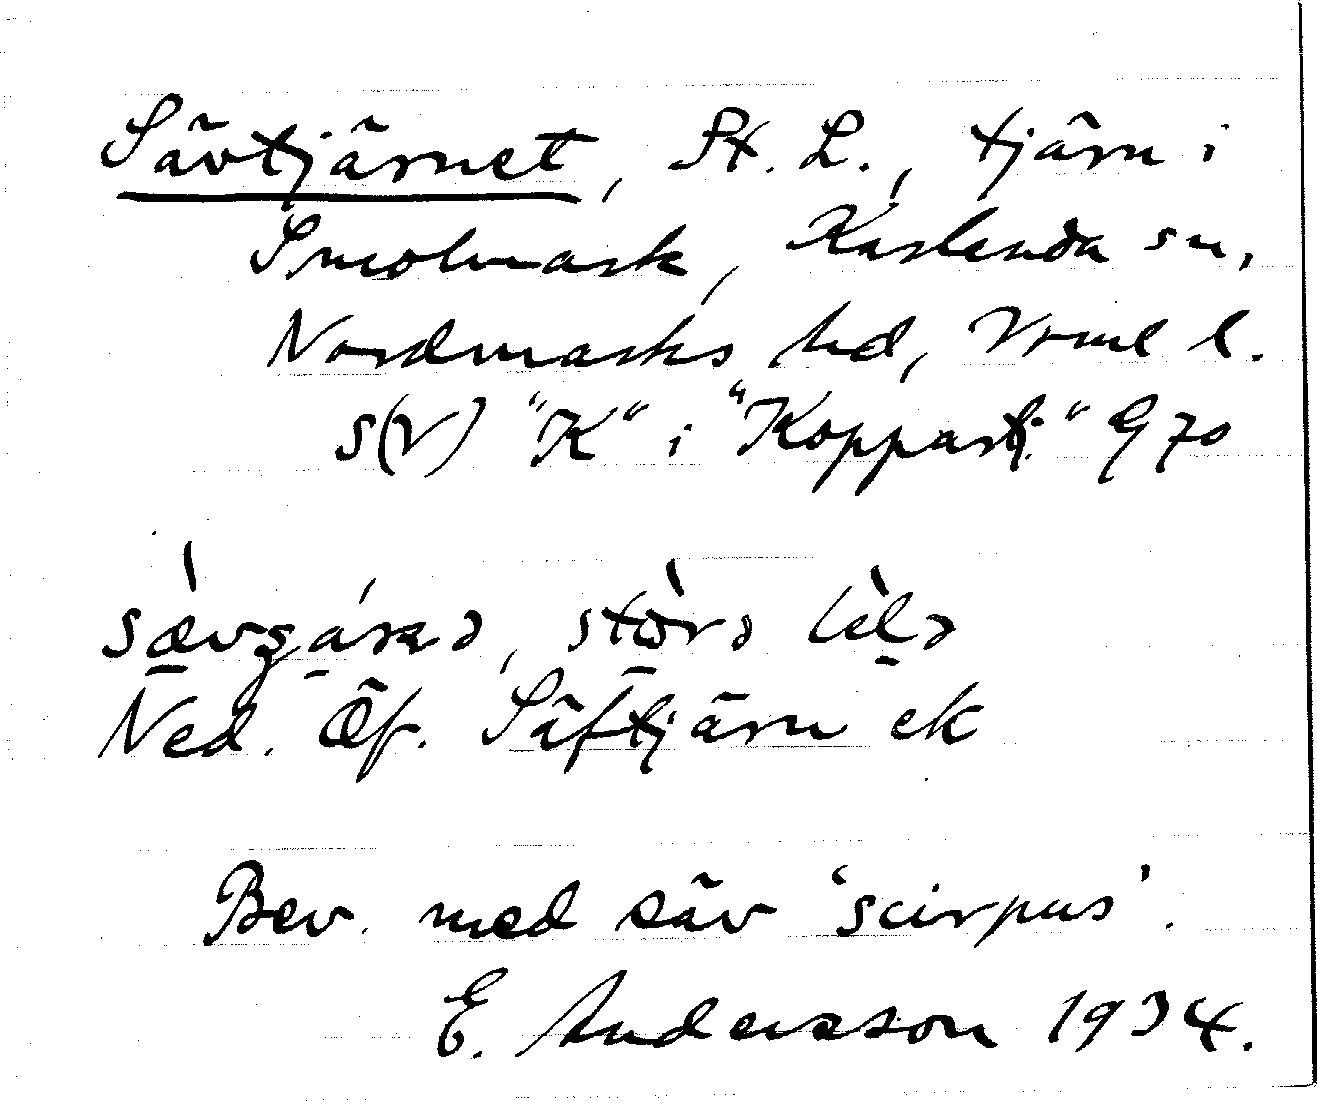 Sävtjärnet, St. L., tjärn i
Smolmark, Karlanda sn,
Nordmarks hd, Vrml l.
S(V) "K" i "Koppart." G 70
sævgárnə, stòrə lìlə
Ned. Öf. Säftjärn ek
Bev. med säv 'scirpus'.
E. Andersson 1934.